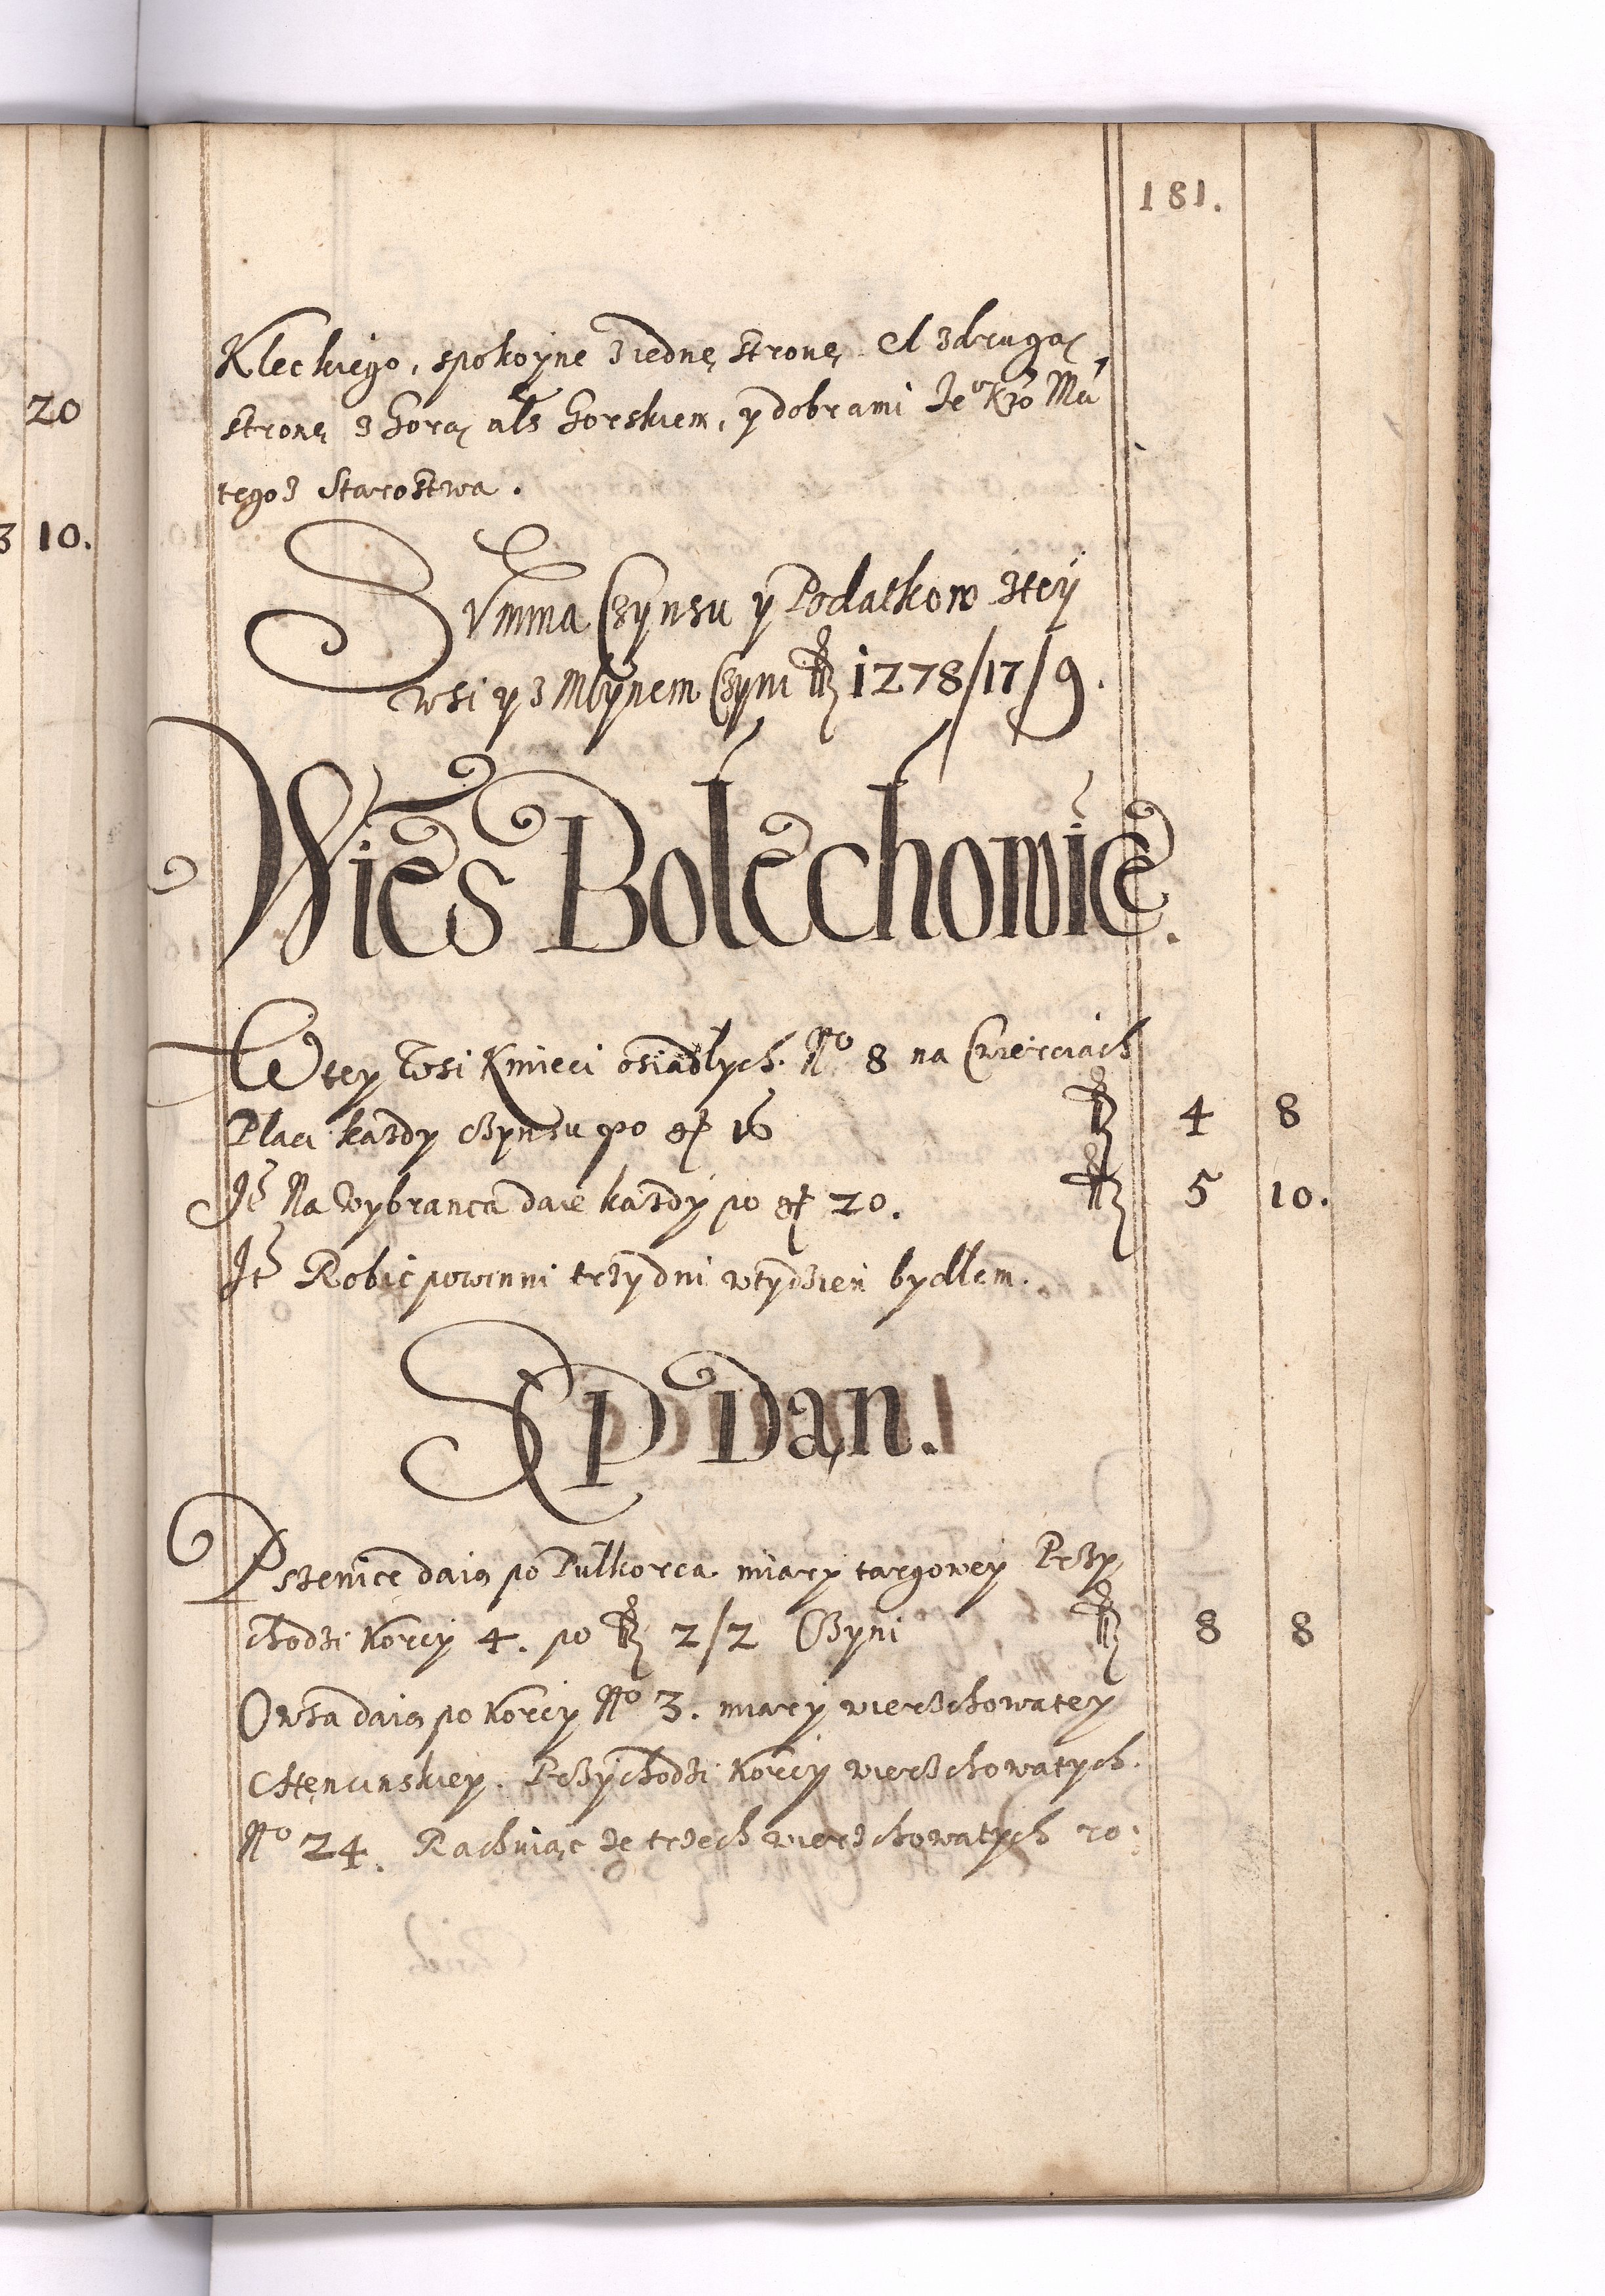 20
3 10.
181.
Kleckiego, spokoyne z iednę stronę. A z drugą
stronę z Gorą als Gorskiem, y dobrami Je° K° Mci
tegoz Starostwa.
Summa Czynszu y Podatkow z tey
wsi y z Młynem Czyni 1278/17/9.
Wieś Bolechowice.
W tey Wsi Kmieci osiadłych. N° 8 na Cwierciach
Płaci kazdy czynszu po gr 16 4 8
It Na Wybranca daie kazdy po gr 20. 5 10.
It Robić powinni trzy dni w tydzień bydłem.
Sęp Dan.
Pszenice daią po Pułkorca miary targowey Przy
chodzi Korcy 4. po 2/2 Czyni 8 8
Owsa daią po Korcy N° 3. miary wierzchowatey
Chęncinskiey. Przychodzi Korcy wierzchowatych.
N° 24. Rachuiąc ze trzech wierzchowatych